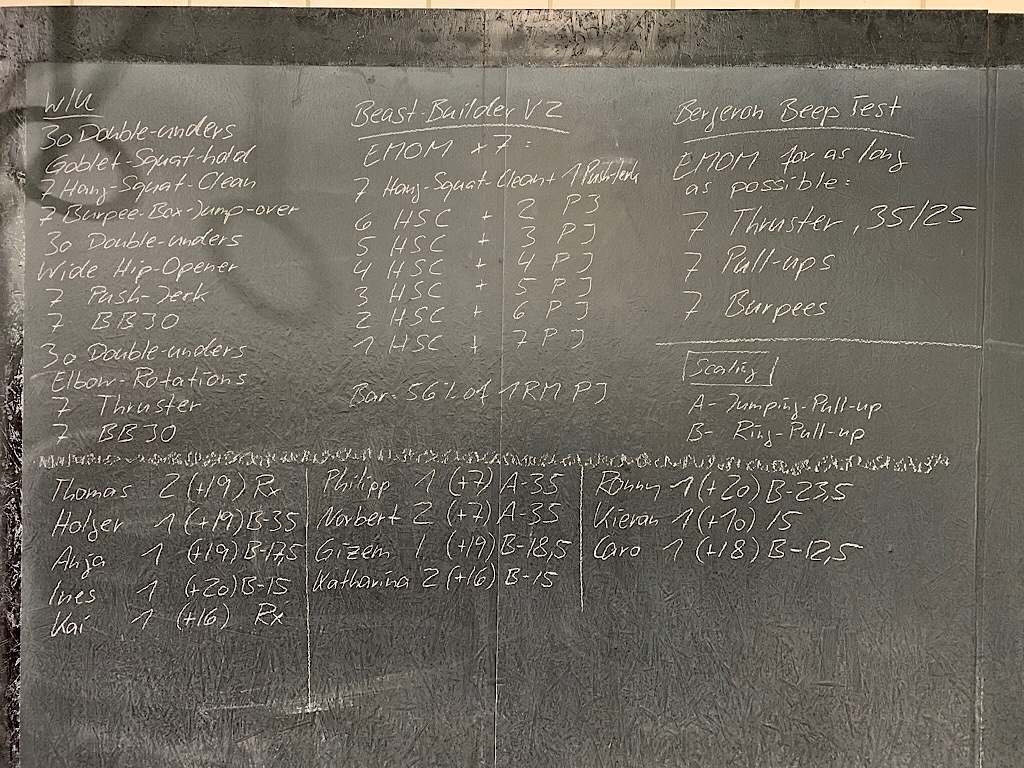 W/U
30 Double-unders
Goblet-Squat-hold
7 Hang-Squat-Clean
7 Burpee-Box-Jump-over
30 Double-unders
Wide Hip-Opener
7 Push-Jerk
7 BBJO
30 Double-unders
Elbow-Rotations
7 Thruster
7 BBJO
Beast-Builder V2
EMOM x 7:
7 Hang-Squat-Clean + 1 Push Jerk
6 HSC + 2 PJ
5 HSC + 3 PJ
4 HSC + 4 PJ
3 HSC + 5 PJ
2 HSC + 6 PJ
1 HSC + 7 PJ
Bar: 56% of 1RM PJ
Bergeron Beep Test
EMOM for as long
as possible:
7 Thruster, 35/25
7 Pull-ups
7 Burpees
Scaling
A- Jumping-Pull-up
B- Ring-Pull-up
Thomas 2 (+19) Rx
Holger 1 (+19) B-35
Anja 1 (+19) B-17,5
Ines 1 (+20) B-15
Kai 1 (+16) Rx
Philipp 1 (+7) A-35
Norbert 2 (+7) A-35
Gizem 1 (+19) B-18,5
Katharina 2 (+16) B-15
Ronny 1 (+20) B-23,5
Kieran 1 (+10) 15
Caro 1 (+18) B-12,5